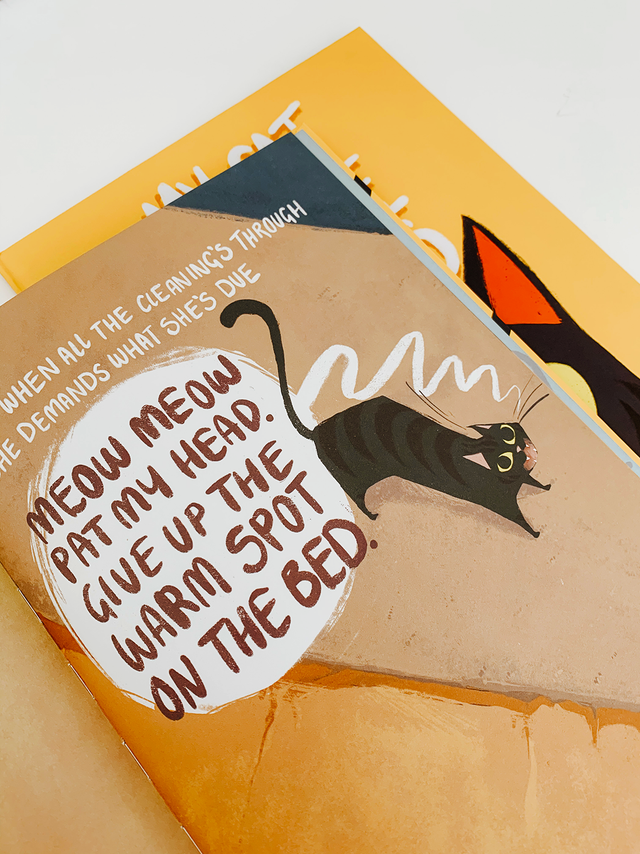 WHEN ALL THE CLEANING'S THROUGH
HE DEMANDS WHAT SHE'S DUE
MEOW MEOW
PAT MY HEAD.
GIVE UP THE
WARM SPOT
ON THE BED.